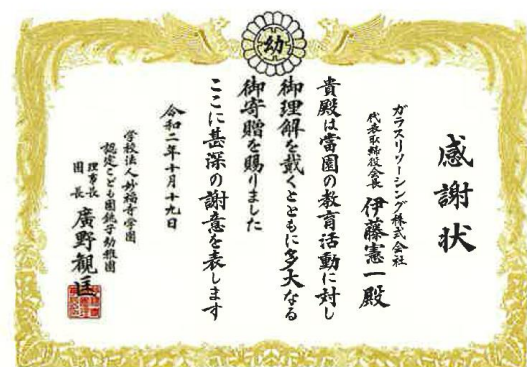 幼
感謝状
ガラスリソーシング株式会社
代表取締役会長 伊藤憲一殿
貴殿は当園の教育活動に対し
御理解を戴くとともに多大なる
御寄贈を賜りました
ここに甚深の謝意を表します
令和二年十月十九日
学校法人妙福寺学園
認定こども園銚子幼稚園
理事長
園長 廣野観匡